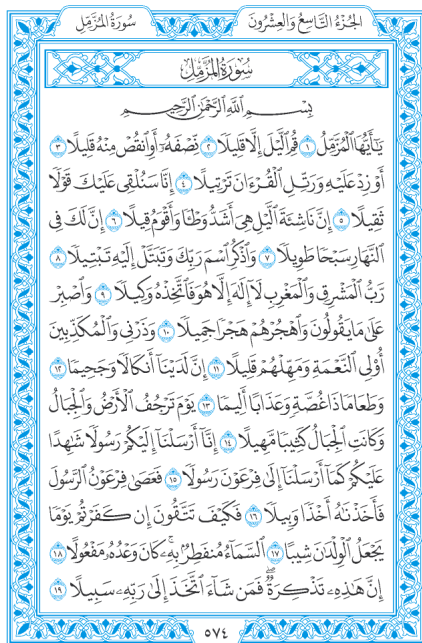 سُورَةُ المُزَّمِّل
الجُزْءُ التَّاسِعُ وَالعِشْرُونَ
سُورَةُ المُزَّمِّلِ
بِسْمِ ٱللَّهِ ٱلرَّحْمَٰنِ ٱلرَّحِيمِ
يَٰٓأَيُّهَا ٱلْمُزَّمِّلُ ١ قُمِ ٱلَّيْلَ إِلَّا قَلِيلًا ٢ نِّصْفَهُۥٓ أَوِ ٱنقُصْ مِنْهُ قَلِيلًا ٣
أَوْ زِدْ عَلَيْهِ وَرَتِّلِ ٱلْقُرْءَانَ تَرْتِيلًا ٤ إِنَّا سَنُلْقِى عَلَيْكَ قَوْلًا
ثَقِيلًا ٥ إِنَّ نَاشِئَةَ ٱلَّيْلِ هِىَ أَشَدُّ وَطْـًٔا وَأَقْوَمُ قِيلًا ٦ إِنَّ لَكَ فِى
ٱلنَّهَارِ سَبْحًا طَوِيلًا ٧ وَٱذْكُرِ ٱسْمَ رَبِّكَ وَتَبَتَّلْ إِلَيْهِ تَبْتِيلًا ٨
رَّبُّ ٱلْمَشْرِقِ وَٱلْمَغْرِبِ لَآ إِلَٰهَ إِلَّا هُوَ فَٱتَّخِذْهُ وَكِيلًا ٩ وَٱصْبِرْ
عَلَىٰ مَا يَقُولُونَ وَٱهْجُرْهُمْ هَجْرًا جَمِيلًا ١٠ وَذَرْنِى وَٱلْمُكَذِّبِينَ
أُو۟لِى ٱلنَّعْمَةِ وَمَهِّلْهُمْ قَلِيلًا ١١ إِنَّ لَدَيْنَآ أَنكَالًا وَجَحِيمًا ١٢
وَطَعَامًا ذَا غُصَّةٍ وَعَذَابًا أَلِيمًا ١٣ يَوْمَ تَرْجُفُ ٱلْأَرْضُ وَٱلْجِبَالُ
وَكَانَتِ ٱلْجِبَالُ كَثِيبًا مَّهِيلًا ١٤ إِنَّآ أَرْسَلْنَآ إِلَيْكُمْ رَسُولًا شَٰهِدًا
عَلَيْكُمْ كَمَآ أَرْسَلْنَآ إِلَىٰ فِرْعَوْنَ رَسُولًا ١٥ فَعَصَىٰ فِرْعَوْنُ ٱلرَّسُولَ
فَأَخَذْنَٰهُ أَخْذًا وَبِيلًا ١٦ فَكَيْفَ تَتَّقُونَ إِن كَفَرْتُمْ يَوْمًا
يَجْعَلُ ٱلْوِلْدَٰنَ شِيبًا ١٧ ٱلسَّمَآءُ مُنفَطِرٌۢ بِهِۦ ۚ كَانَ وَعْدُهُۥ مَفْعُولًا ١٨
إِنَّ هَٰذِهِۦ تَذْكِرَةٌ ۖ فَمَن شَآءَ ٱتَّخَذَ إِلَىٰ رَبِّهِۦ سَبِيلًا ١٩
٥٧٤